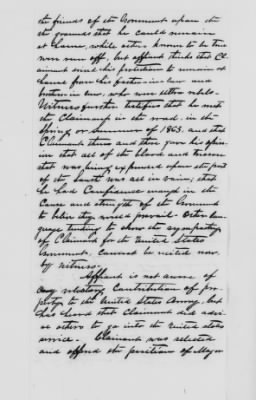 the friends of the Government upon the
the grounds that he could remain
at home, while others known to be true
were run off; but affiant thinks that Cl-
aimant owed his protection to remain at
home from his father in law and
brother in law, who were ultra rebels.
Witness further testifies that he met
the Claimant in the road, in the
Spring or Summer of 1863, and that
Claimant then and there gave his opin-
ion that all of the blood and treasure
that was being expended upon the part
of the South was all in vain; that
he had confidence enough in the
cause and strength of the Government
to believe they would prevail. Other lan-
guage tending to show the sympathy
of Claimant for the United States
Government, cannot be recited now
by witness.
Affiant is not aware of
any voluntary contribution of pro-
perty to the United States Army, but
has heard that Claimant did advi-
se others to go into the United States
service. Claimant was selected
and offered the position of Major